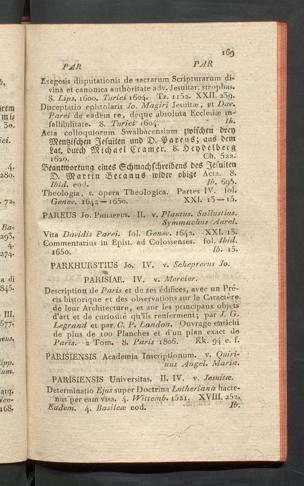 169
PAR PAR
Exegesis disputationis de sacrarum Scripturarum di-
vina et canonica authoritate adv. Jesuitar. strophas.
8. Lips. 1600. Turici 1604. Tz. 1152. XXII. 239.
Disceptatio epistolaris Jo. Magiri Jesuitæ, et Dav.
Parei de eadem re, deque absoluta Ecclesiæ in-
fallibilitate. 8. Turici 1604. Ib.
Acta colloquiorum Swalbacensium zwischen dreÿ
Mentzischen Jesuiten und D. Pareus; aus dem
Lat. durch Michael Cramer. 8. Heydelberg
1620. Ch. 522.
Beantwortung eines Schmachschreibens des Jesuiten
D. Martin Becanus wider obige Acta. 8.
Ibid. eod. Ib. 695.
Theologia, s. opera Theologica. Partes IV. fol.
Genev. 1642—1650. XXI. 15—15.
PAREUS Jo. Philippus. II. v. Plautus. Sallustius.
Symmachus Aurel.
Vita Davidis Parei. fol. Genev. 1642. XXI. 15.
Commentarius in Epist. ad Colossenses. fol. Ibid.
1650. Ib. 15.
PARKHURSTIUS Jo. IV. v. Scheprevus Jo.
PARISIAE. IV. v. Mercier.
Description de Paris et de ses édifices, avec un Pré-
cis historique et des observations sur le Caractère
de leur Architecture, et sur les principaux objets
d'art et de curiosité qu'ils renferment; par J. G.
Legrand et par C. P. Landon. Ouvrage enrichi
de plus de 100 Planches et d'un plan exact de
Paris. 2 Tom. 8. Paris 1806. Kk. 94 e. f.
PARISIENSIS Academia Inscriptionum. v. Quiri-
nus Angel. Maria.
PARISIENSIS Universitas. II. IV. v. Jesuitæ.
Determinatio Ejus super Doctrina Lutheriana hacte-
nus per eam visa. 4. Wittemb. 1521. XVIII. 252.
Eadem. 4. Basileæ eod. Ib.